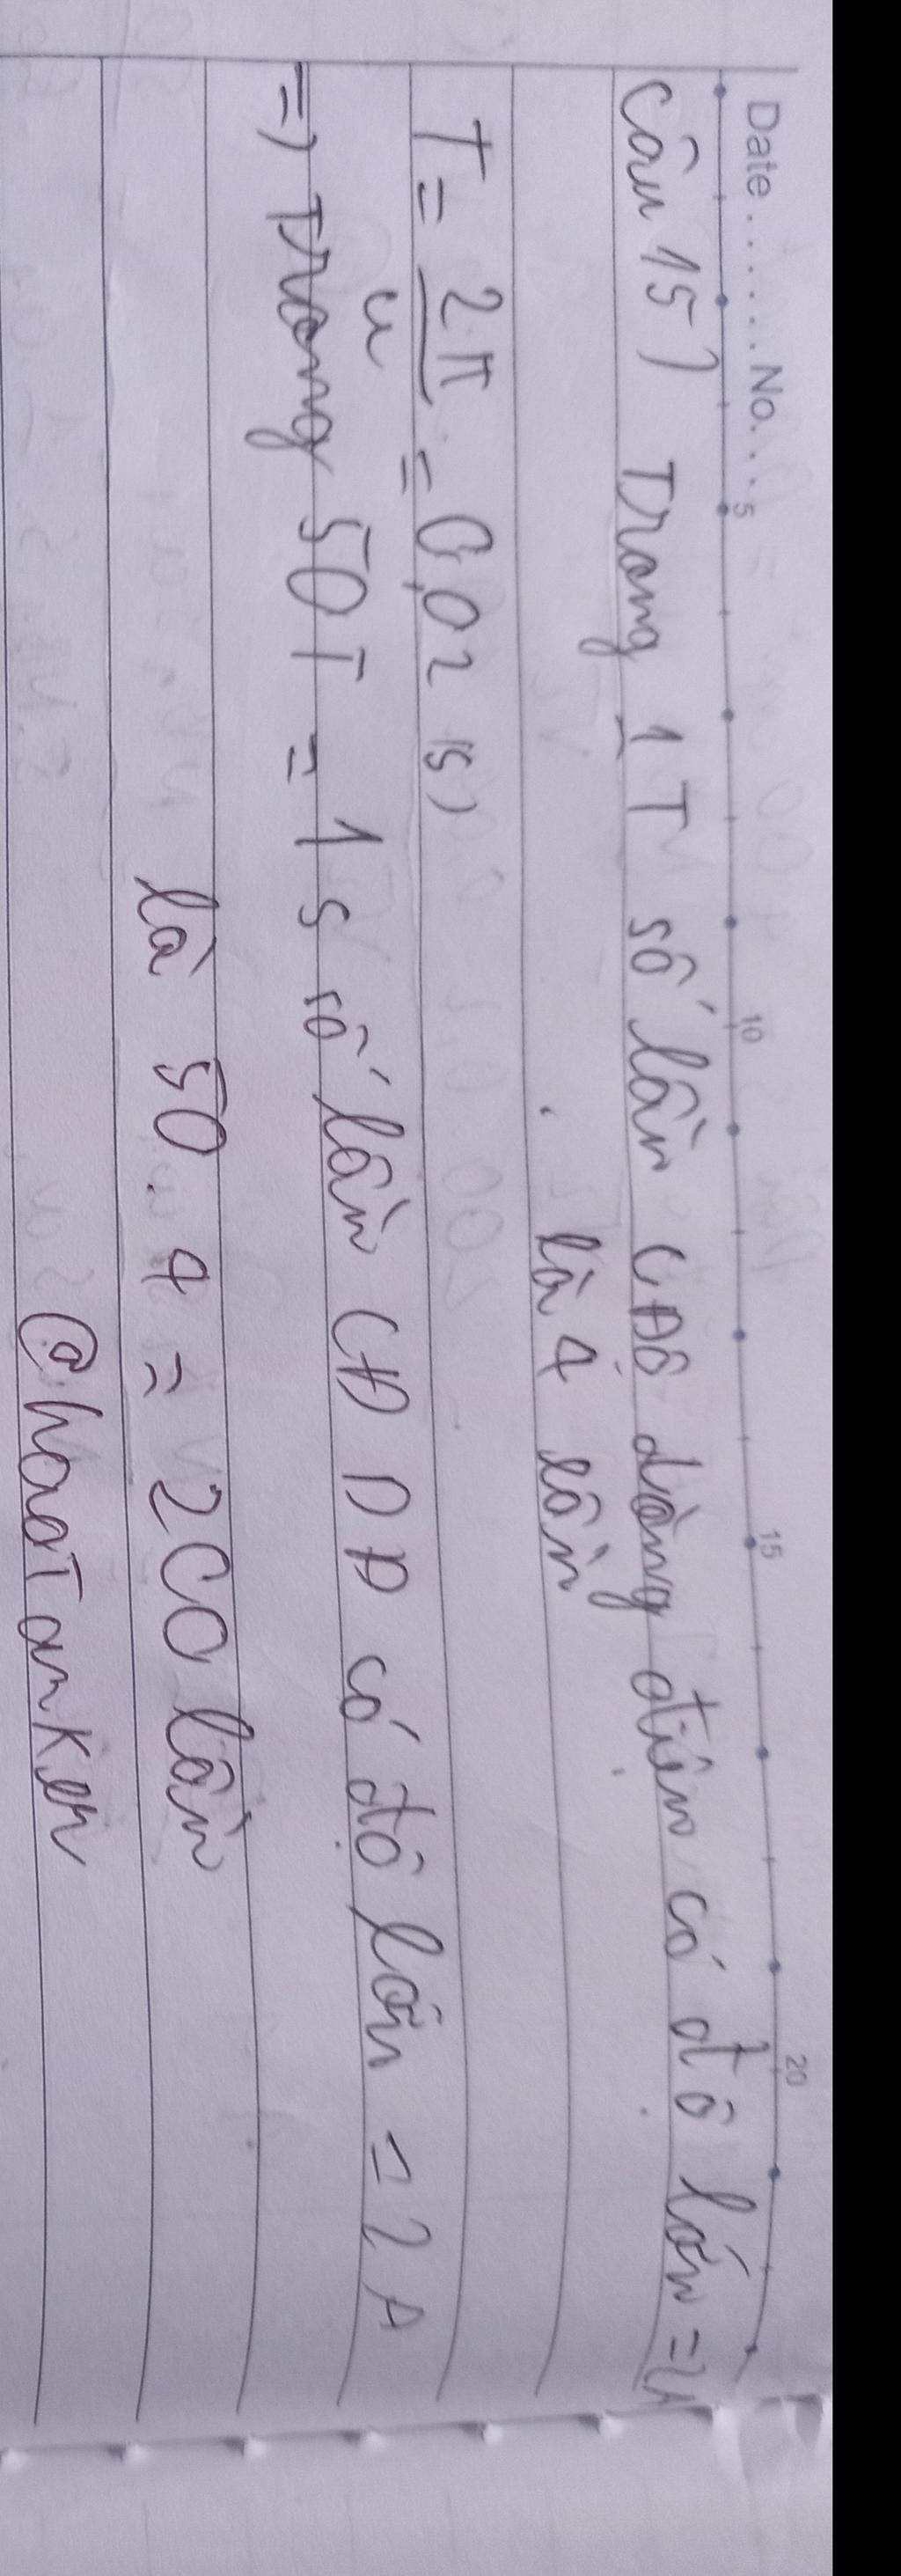 Date . . . . . . No. . . .
5 10 15 20
Câu 15) Trong 1T số lần CĐộ dòng điện có độ lớn = 2A
là 4 lần
T = 2.π / ω = 0,02 (s)
=> Trong 50T = 1s số lần CĐDĐ có độ lớn = 2A
là 50.4 = 200 lần
@hoaTanKen